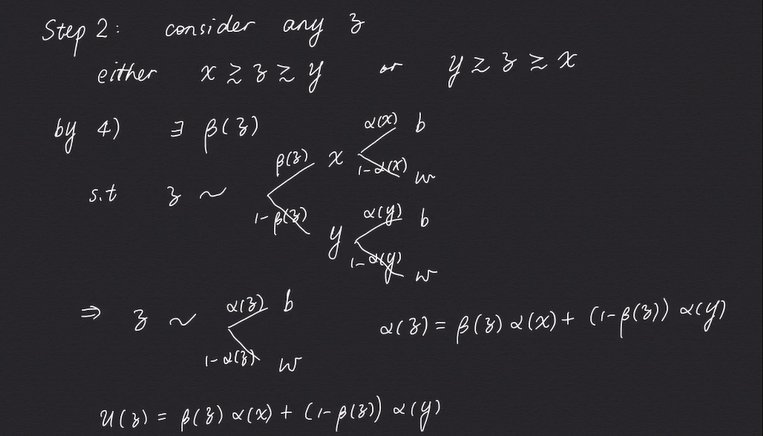 Step 2: consider any z
either x ≿ z ≿ y or y ≿ z ≿ x
by 4) ∃ β(z)
s.t z ~ β(z) x α(x) b 1-α(x) w
1-β(z) y α(y) b 1-α(y) w
⇒ z ~ α(z) b 1-α(z) w α(z) = β(z) α(x) + (1-β(z)) α(y)
u(z) = β(z) α(x) + (1-β(z)) α(y)